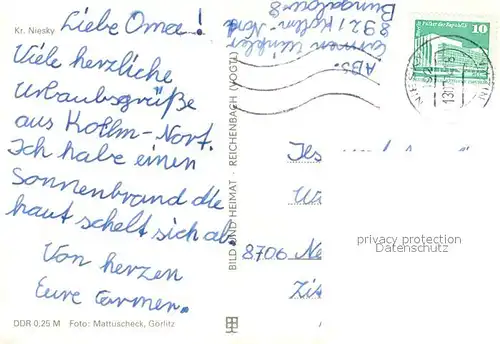 Kr. Niesky
Liebe Oma!
Viele herzliche
Urlaubsgrüße
aus Kollm-Nort.
Ich habe einen
Sonnenbrand die
haut schelt sich ab
Von herzen
Eure Carmen.
DDR 0,25 M Foto: Mattuscheck, Görlitz
BILD UND HEIMAT · REICHENBACH (VOGTL)
Abs.
Carmen Winkler
8921 Kollm-Nord
Bungalow 8
Palast der Republik
10
8706 Ne
privacy protection
Datenschutz